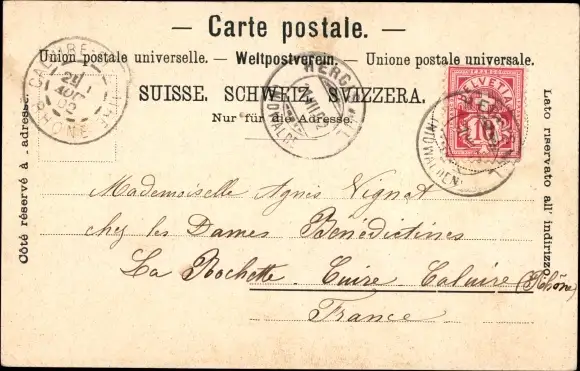 — Carte postale. —
Union postale universelle. — Weltpostverein. — Unione postale universale.
SUISSE. SCHWEIZ. SVIZZERA.
Nur für die Adresse.
Côté réservé à l'adresse.
Lato riservato all' indirizzo.
HELVETIA
10
CALUIRE-ET-CUIRE
RHONE
Mademoiselle Agnès Vignat
chez les Dames Bénédictines
La Rochette. Cuire Caluire (Rhône)
France